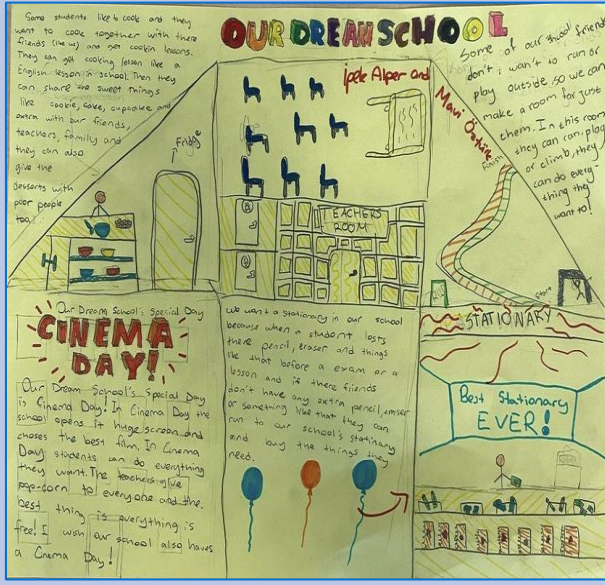 OUR DREAM SCHOOL
Some students like to cook and they
want to cook together with there
friends (like us) and get cookin lessons.
They can get cooking lesson like a
English lesson in school. Then they
can share the sweet things
like cookie, cake, cupcake and
extra with our friends,
teachers, family and
they can also
give the
desserts with
poor people
too.
Fridge
İpek Alper and
Mavi
TEACHERS
ROOM
Some of our school friends
don't want to run or
play outside so we can
make a room for just
them. In this room
they can run, play
or climb, they
can do every
thing they
want to!
Finish
Start
Our Dream School's Special Day
CINEMA
DAY!
Our Dream School's Special Day
is Cinema Day! In Cinema Day the
school opens it huge screen and
choses the best film. In Cinema
Day students can do everything
they want. The teachers give
pop-corn to everyone and the
best thing is everything is
free! I wish our school also haves
a Cinema Day!
We want a stationary in our school
because when a student losts
there pencil, eraser and things
like that before a exam or a
lesson and if there friends
don't have any extra pencil, eraser
or something like that they can
run to our school's stationary
and buy the things they
need.
STATIONARY
Best Stationary
EVER!